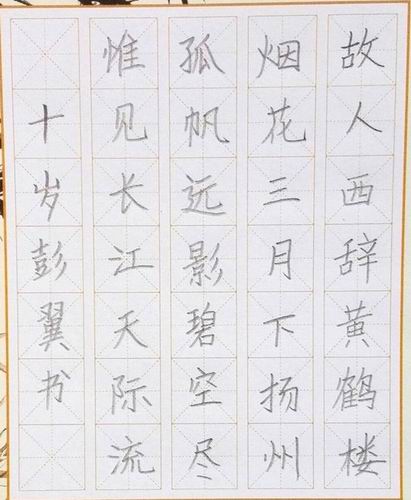 故人西辞黄鹤楼
烟花三月下扬州
孤帆远影碧空尽
惟见长江天际流
十岁彭翼书